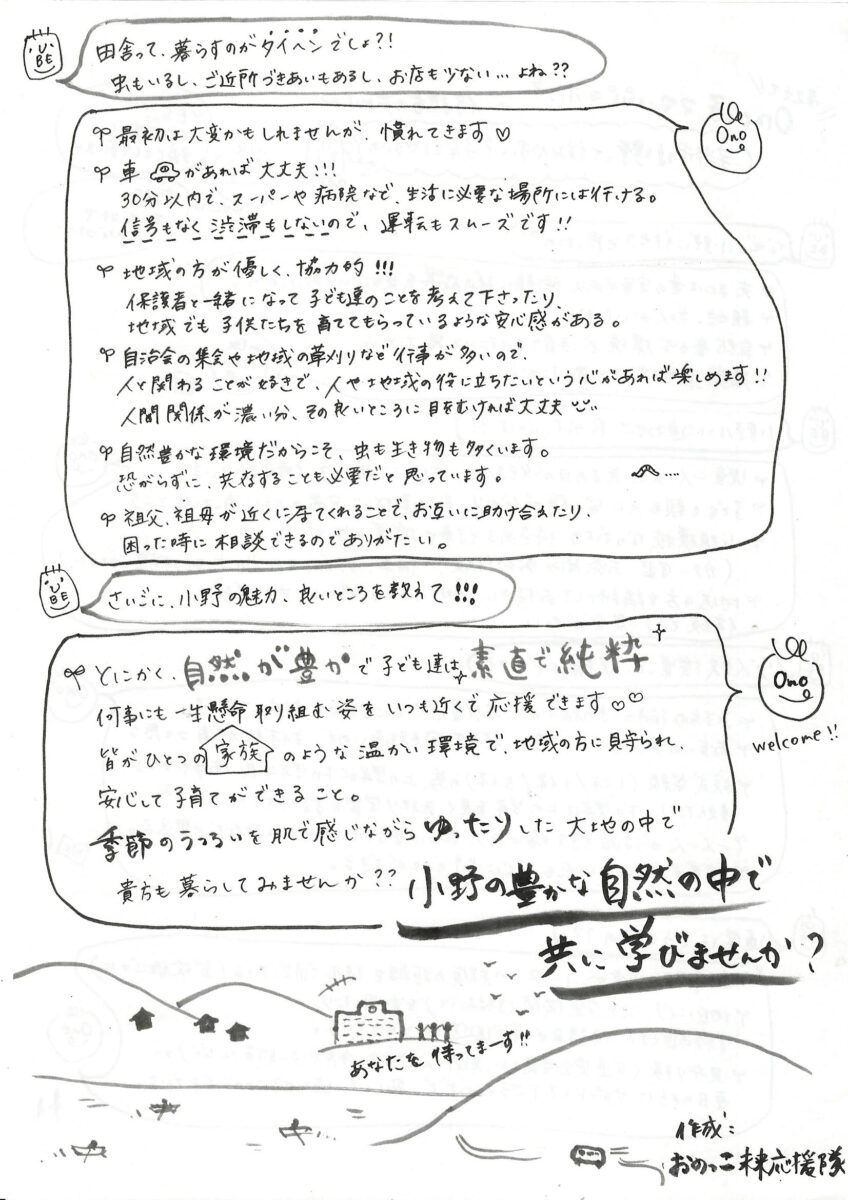 UBE
田舎って、暮らすのがタイヘンでしょ?!
虫もいるし、ご近所づきあいもあるし、お店も少ない…よね??
Ono
最初は大変かもしれませんが、慣れてきます♡
車があれば大丈夫!!!
30分以内で、スーパーや病院など、生活に必要な場所には行ける。
信号もなく渋滞もしないので、運転もスムーズです!!
地域の方が優しく、協力的!!!
保護者と一緒になって子ども達のことを考えて下さったり、
地域でも子供たちを育ててもらっているような安心感がある。
自治会の集会や地域の草刈りなど行事が多いので、
人と関わることが好きで、人や地域の役に立ちたいという心があれば楽しめます!!
人間関係が濃い分、その良いところに目をむければ大丈夫
自然豊かな環境だからこそ、虫も生き物も多くいます。
恐がらずに、共存することも必要だと思っています。
祖父、祖母が近くに居てくれることで、お互いに助け合えたり、
困った時に相談できるのでありがたい。
UBE
さいごに、小野の魅力、良いところを教えて!!!
Ono
welcome!!
とにかく、自然が豊かで子ども達は素直で純粋
何事にも一生懸命取り組む姿をいつも近くで応援できます♡♡
皆がひとつの家族のような温かい環境で、地域の方に見守られ、
安心して子育てができること。
季節のうつろいを肌で感じながらゆったりした大地の中で
貴方も暮らしてみませんか??
小野の豊かな自然の中で
共に学びませんか?
あなたを待ってまーす!!
作成:
おのっこ未来応援隊